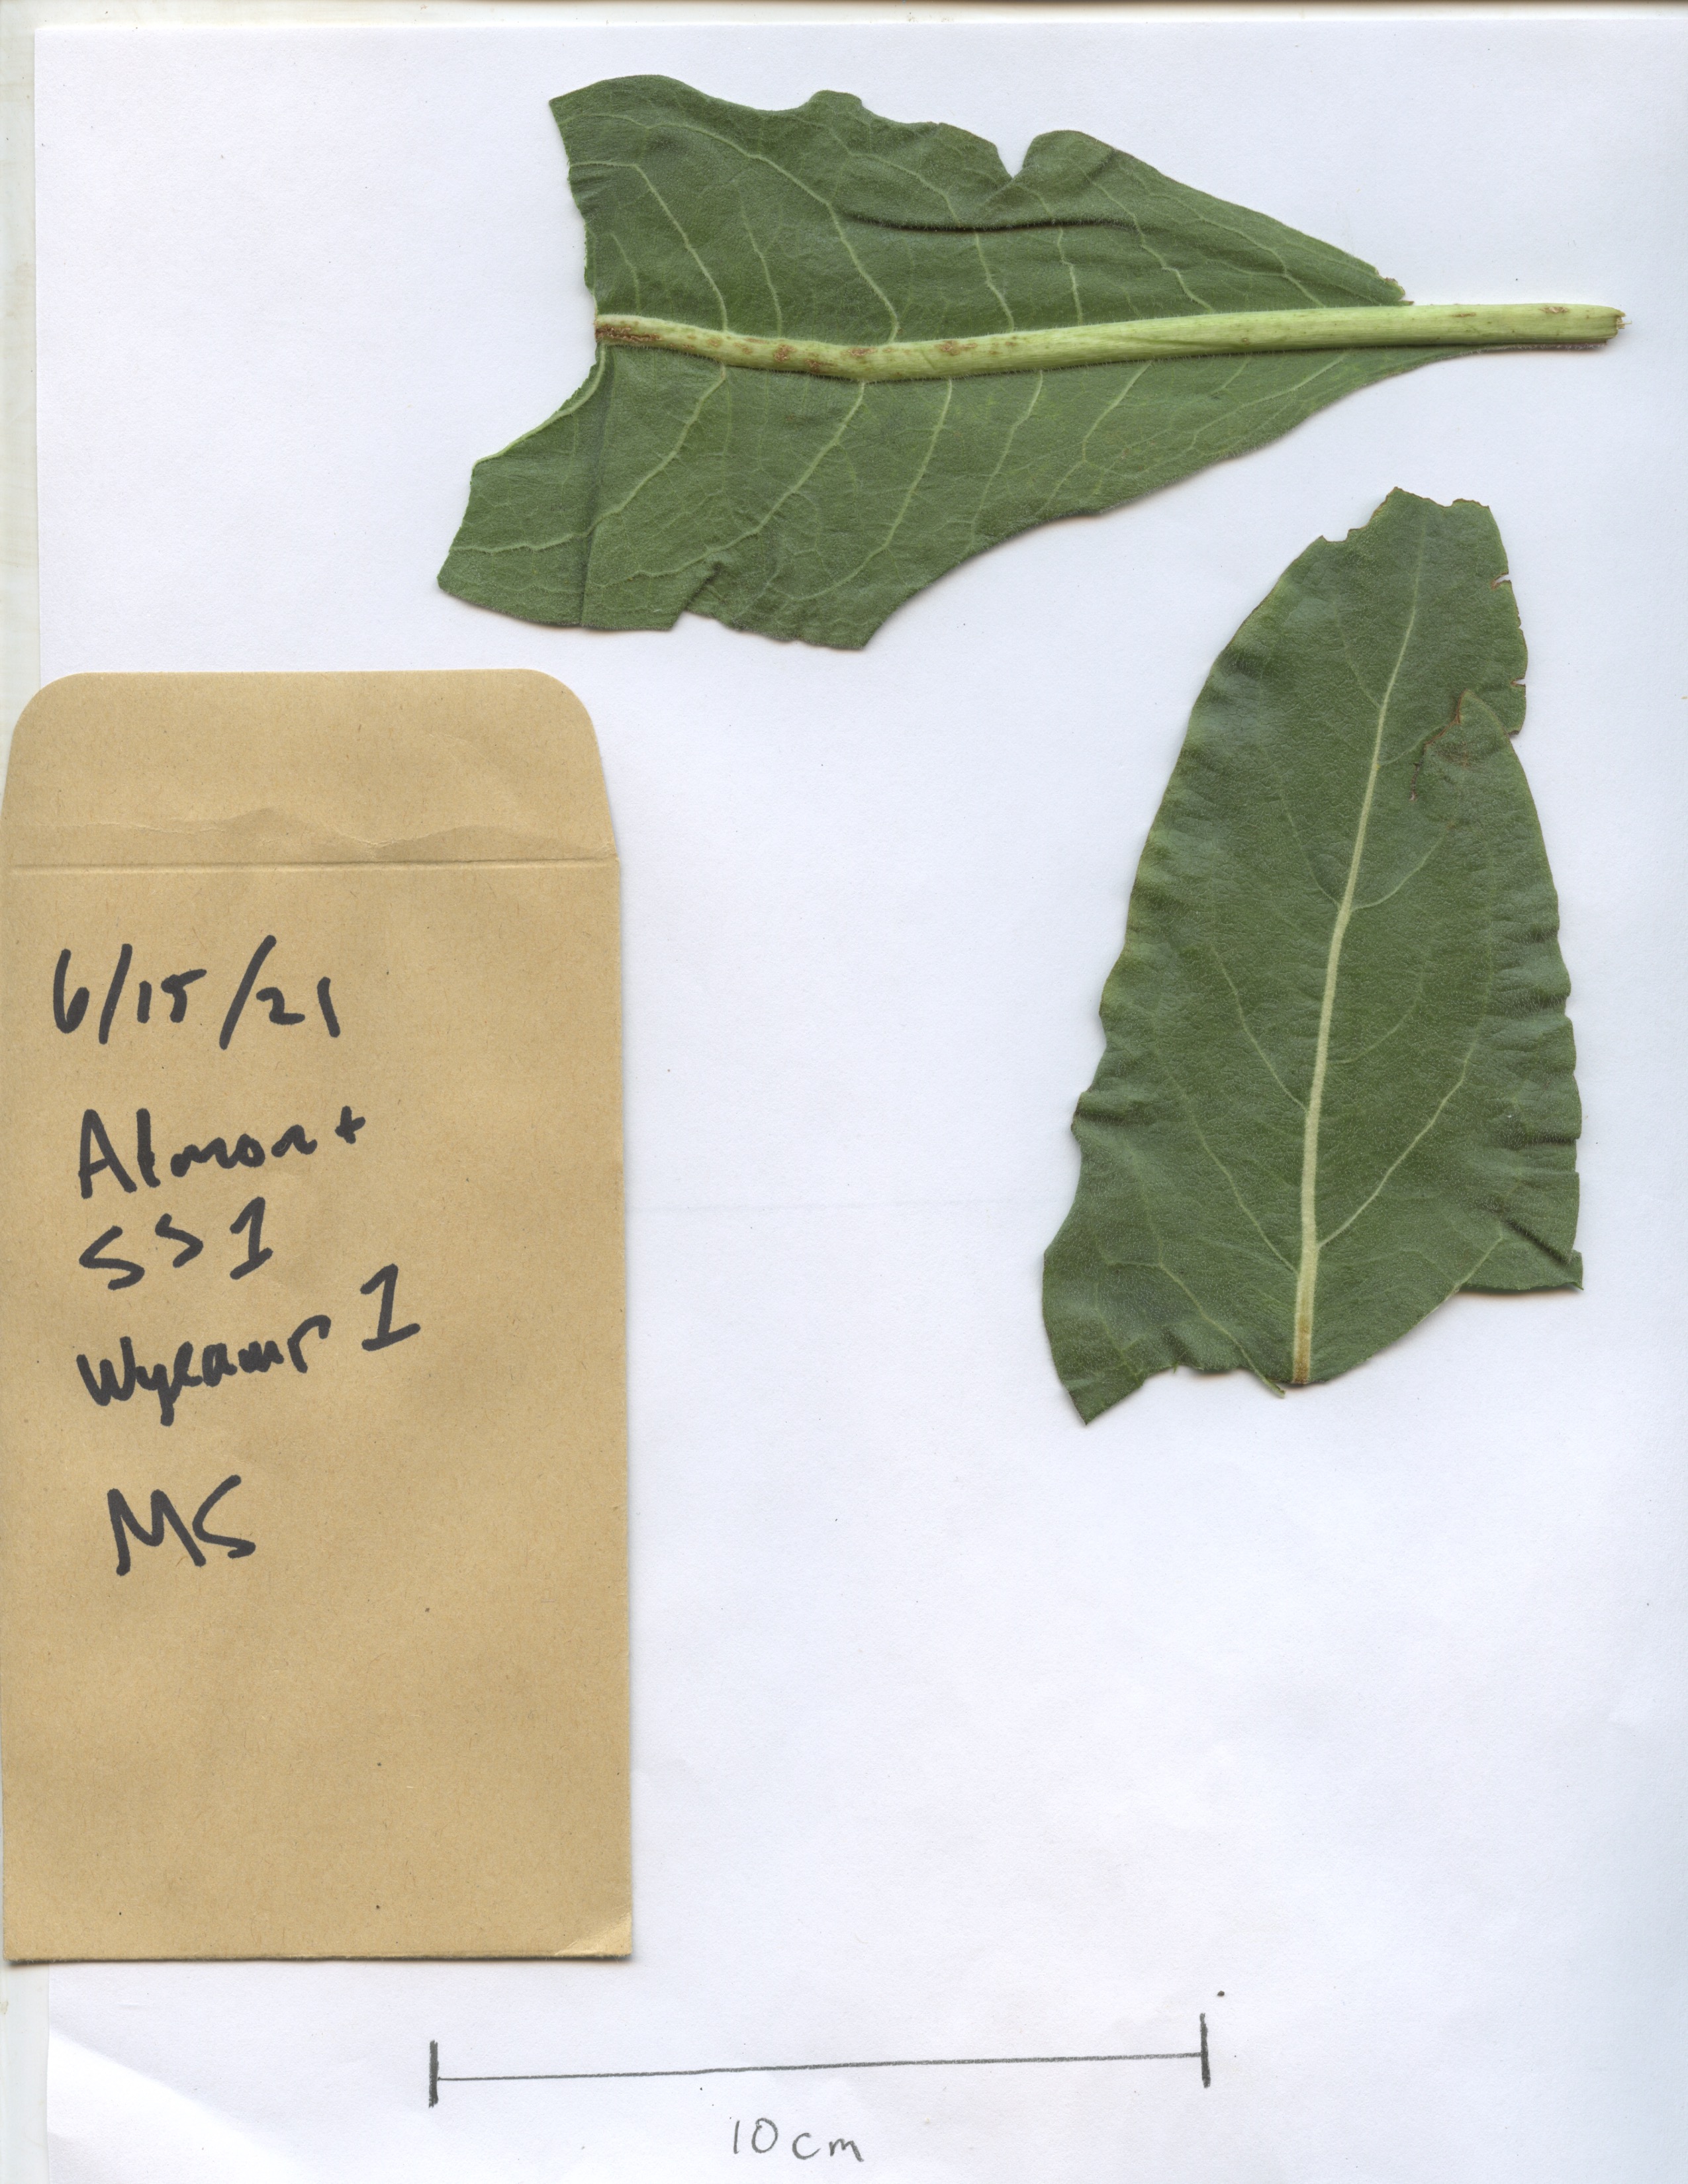 6/15/21
Almont
SS1
Wycamp 1
MS
10cm